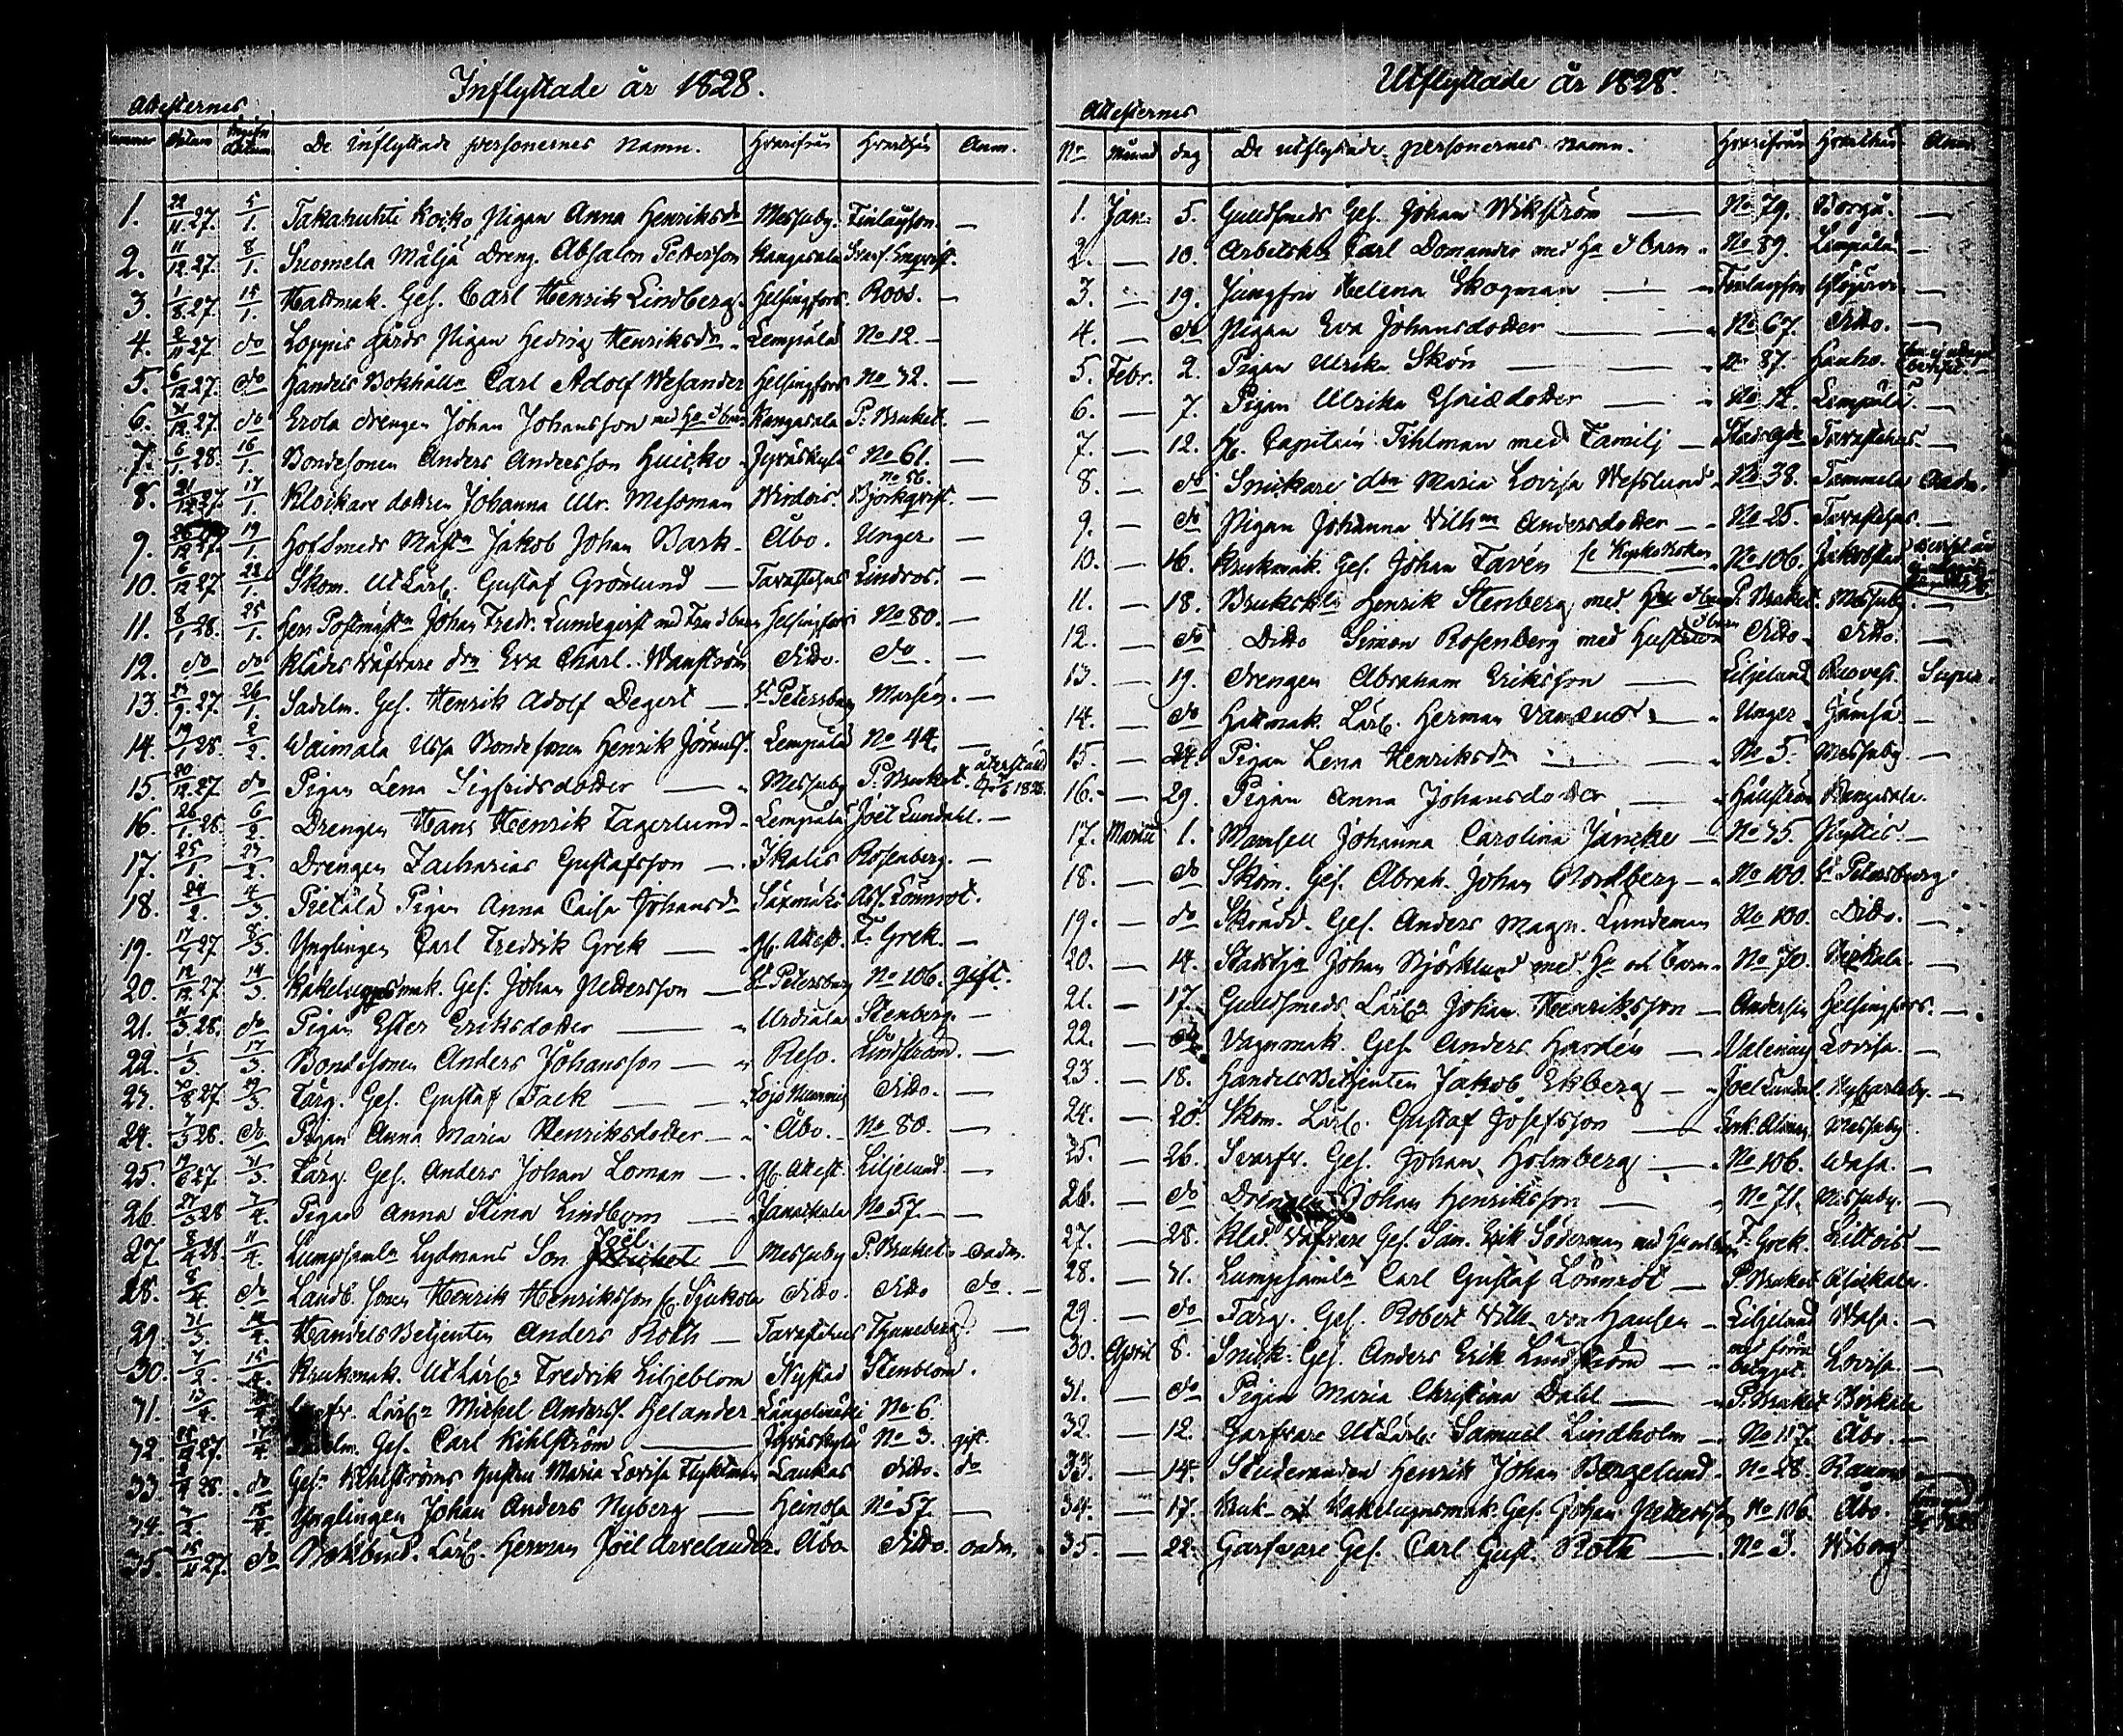 Inflyttade år 1828.
Attesternes
Nummer Datum Datum De Inflyttade personernes Namn. Hvarifrån Hvarthän Anm.
1. 22/11 27. 5/1. Takahuhti Koiko Pigan Anna Henriksdr Messuby. Finlayson. —
2. 11/12 27. 8/1. Suomela Mäljä Dreng Absalon Pettersson Kangasala
3. 1/8 27. 15/1. Hattmak. Ges. Carl Henrik Lindberg. Helsingfors. Roos. —
4. 2/11 27 do Loppis Gårds Pigan Hedvig Henriksdr. Lempälä No 12. —
5. 6/12 27. do Handels Bokhålln Carl Adolf Wesander Helsingfors No 32. —
6. 31/12 27. do Erola drengen Johan Johansson med Hu & barn Kangasala P. Bruket. —
7. 6/1. 28. 16/1. Bondesonen Anders Andersson Huicko Jyväskylä No 61. —
8. 21/12 27. 17/1. Klockare dottren Johanna Ulr. Messman Wirdois. No 56. Björkqvist. —
9. 12 27. 19/1. Hofsmeds Mästn Jakob Johan Bark. Åbo. Unger —
10. 6/12 27 22/1. Skom. UtLärl. Gustaf Grönlund — Tavastehus Lindros. —
11. 8/1 28. 25/1. Herr Postmästn Johan Fredr. Lundeqvist med Fru & barn Helsingfors No 80. —
12. do do Klädes Väfvare dn Eva Charl. Wanström ditto. do. —
13. 9. 27. 26/1. Sadelm. Ges. Henrik Adolf Degert — St Petersburg Marsén. —
14. 19/1 28. 2/2. Waimala Ussa Bondesonen Henrik Jöranss. Lempälä No 44. —
15. 30/12 27 do Pigan Lena Sigfridsdotter — Messuby P. Bruket. återstäld 1828.
16. 26/1. 28. 6/2. Drengen Hans Henrik Fagerlund. Lempälä Joël Lundahl. —
17. 25/1. 27/2. Drengen Zacharias Gustafsson — Ikalis Rosenberg. —
18. 24/2. 4/3. Pietilä Pigan Anna Caisa Johansdr Säxmäki Ass. Lönnrot.
19. 17/7 27 8/3. Ynglingen Carl Fredrik Grek — Gl. Attest. F. Grek. —
20. 12/12. 27 14/3. Kakelugnsmak. Ges. Johan Pettersson — St Petersburg No 106. gift.
21. 11/3. 28. do Pigan Ester Eriksdotter — Urdiala Stenberg. —
22. 1/3. 17/3. Bondesonen Anders Johansson — Reso. Lindström. —
23. 30/8 27. 19/3. Färg. Ges. Gustaf Fack — Lojo Nummis ditto. —
24. 7/3 28. do Pigan Anna Maria Henriksdotter — Åbo. No 80. —
25. 19/6 27. 31/3. Färg. Ges. Anders Johan Loman — Gl. Attest. Liljelund. —
26. 27/3 28 3/4. Pigan Anna Stina Lindbom — Janakkala No 57. —
27. 8/4 28. 11/4. Lumpsamln Lydmans Son Joël — Messuby P. Bruket. oadm.
28. 8/4. do Landb. Sonen Henrik Henriksson fr. Sjukola ditto. ditto do. —
29. 31/3. 14/4. HandelsBetjenten Anders Roth — Tavastehus Thuneberg. —
30. 2. 15/4. Krukmak. UtLärl. Fredrik Liljeblom Nystad Stenblom.
31. 13/4. Lärl. Michel Anderss. Helander Längelmäki No 6.
32. 15/12 27. 17/4. Ges. Carl Kihlström — Jyväskylä No 3. gift.
33. 28. do Ges. Kihlströms hustru Maria Lovisa Flyktman Laukas ditto. do
34. 7/2. 18/4. Ynglingen Johan Anders Nyberg — Heinola No 57. —
35. 15/11 27. do Bokbind. Lärl. Herman Joël Arvelander. Åbo ditto. oadm.
Utflyttade år 1828.
Attesternes
No Månad dag De utflyttade personernes Namn. Hvarifrån Hvarthän Anm.
1. Jan. 5. Guldsmeds Ges. Johan Wikström — No 79. Borgå. —
2. — 10. Arbetskln Carl Domander med Hu & barn. No 89. Lempälä —
3. — 19. Jungfru Helena Skogman — Finlayson —
4. — do Pigan Eva Johansdotter — No 67. ditto. —
5. Febr. 2. Pigan Ulrika Skön — No 87. Hauho.
6. — 7. Pigan Ulrika Esaiædotter — No 12. Lempälä. —
7. — 12. H. Capitain Tihlman med Familj — Tavastehus —
8. — do Snickare dn Maria Lovisa Wesslund. No 38. Tammela Oadm.
9. — do Pigan Johanna Vilhna Andersdotter — No 25. Tavastehus —
10. — 16. Krukmak. Ges. Johan Tavén No 106. Jakobstad
11. — 18. Bruksklr Henrik Stenberg med Hu & barn P. Bruket. Messuby. —
12. — do Ditto Simon Rosenberg med Hustru & barn ditto. ditto. —
13. — 19. Drengen Abraham Eriksson — Liljelund Ruovesi.
14. — do Hattmak. Lärl. Herman — Unger Jämsä —
15. — 24. Pigan Lena Henriksdr — No 5. Messuby —
16. — 29. Pigan Anna Johansdotter — Hällström Kangasala.
17. Martii 1. Mamsell Johanna Carolina Jäncke — No 75. Pyttis. —
18. — do Skom. Ges. Abrah. Johan Nordberg — No 100. St Petersburg.
19. — do Skrädd. Ges. Anders Magn. Lundeman No 100. Ditto. —
20. — 14. Johan Björklund med Hu och barn. No 70. Birkala. —
21. — 17. Guldsmeds Lärl. Johan Henriksson — Andersin Helsingfors. —
22. — do Vagnmak. Ges. Anders Hardén — Lovisa. —
23. — 18. HandelsBetjenten Jakob Ekberg — Joel Lundal. Nykarleby. —
24. — 20. Skom. Lärl. Gustaf Josefsson — Messuby
25. — 26. Svarfv. Ges. Johan Holmberg — No 106. Wasa. —
26. — do Drengen Johan Henriksson — No 71. Messuby. —
27. — 28. Kläd. Väfvare Ges. Sam. Erik Söderman med Hu och barn F. Grek. Littois —
28. — 31. Lumpsamln Carl Gustaf Lönnrot — P. Bruket Birkala. —
29. — do Färg. Ges. Robert Vilh. von Hausen — Liljelund Wasa. —
30. April 8. Snick. Ges. Anders Erik Lindström — med förra betyget. Lovisa. —
31. — do Pigan Maria Christina Dahl — P. Bruket Birkala
32. — 12. Garfvare UtLärl. Samuel Lindholm — No 117. Åbo. —
33. — 14. Studeranden Henrik Johan Bergelund. No 28. Raumo —
34. — 17. Kruk- och Kakelugnsmak. Ges. Johan Pettersson No 106. Åbo.
35. — 22. Garfvare Ges. Carl Gust. Roth — No 3. Wiborg